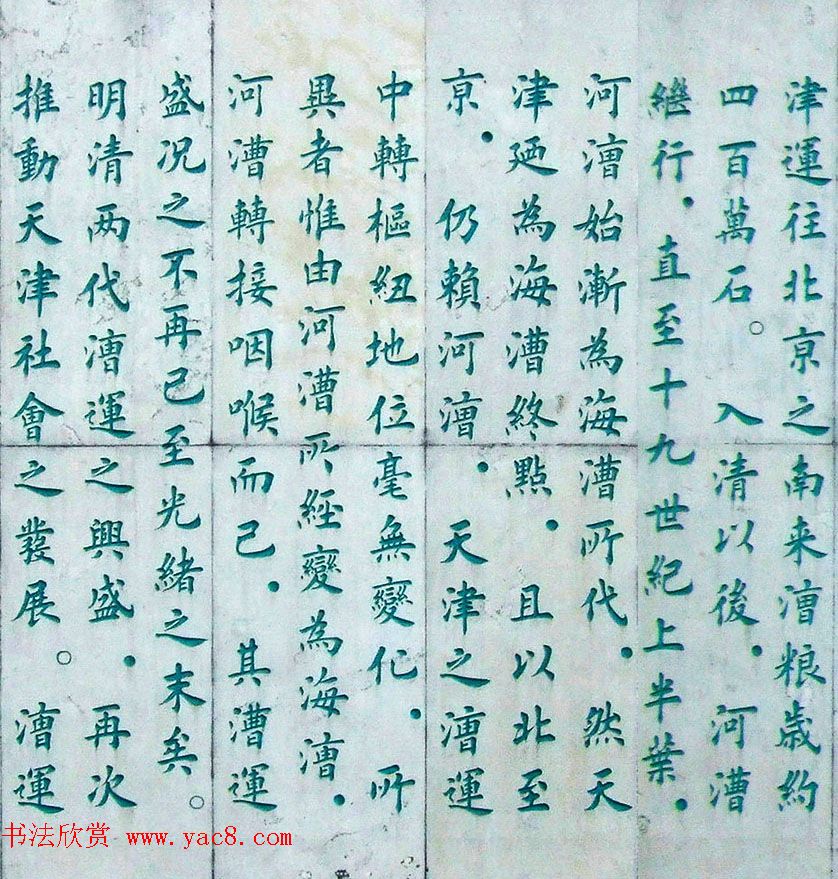 津運往北亰之南来漕粮歲約
四百萬石。入清以後．河漕
繼行．直至十九世紀上半葉．
河漕始漸為海漕所代．然天
津廼為海漕終點．且以北至
亰．仍賴河漕．天津之漕運
中轉樞紐地位毫無變化．所
異者惟由河漕所經變為海漕．
河漕轉接咽喉而已．其漕運
盛况之不再已至光緒之末矣。
明清两代漕運之興盛．再次
推動天津社會之發展。漕運
书法欣赏 www.yac8.com